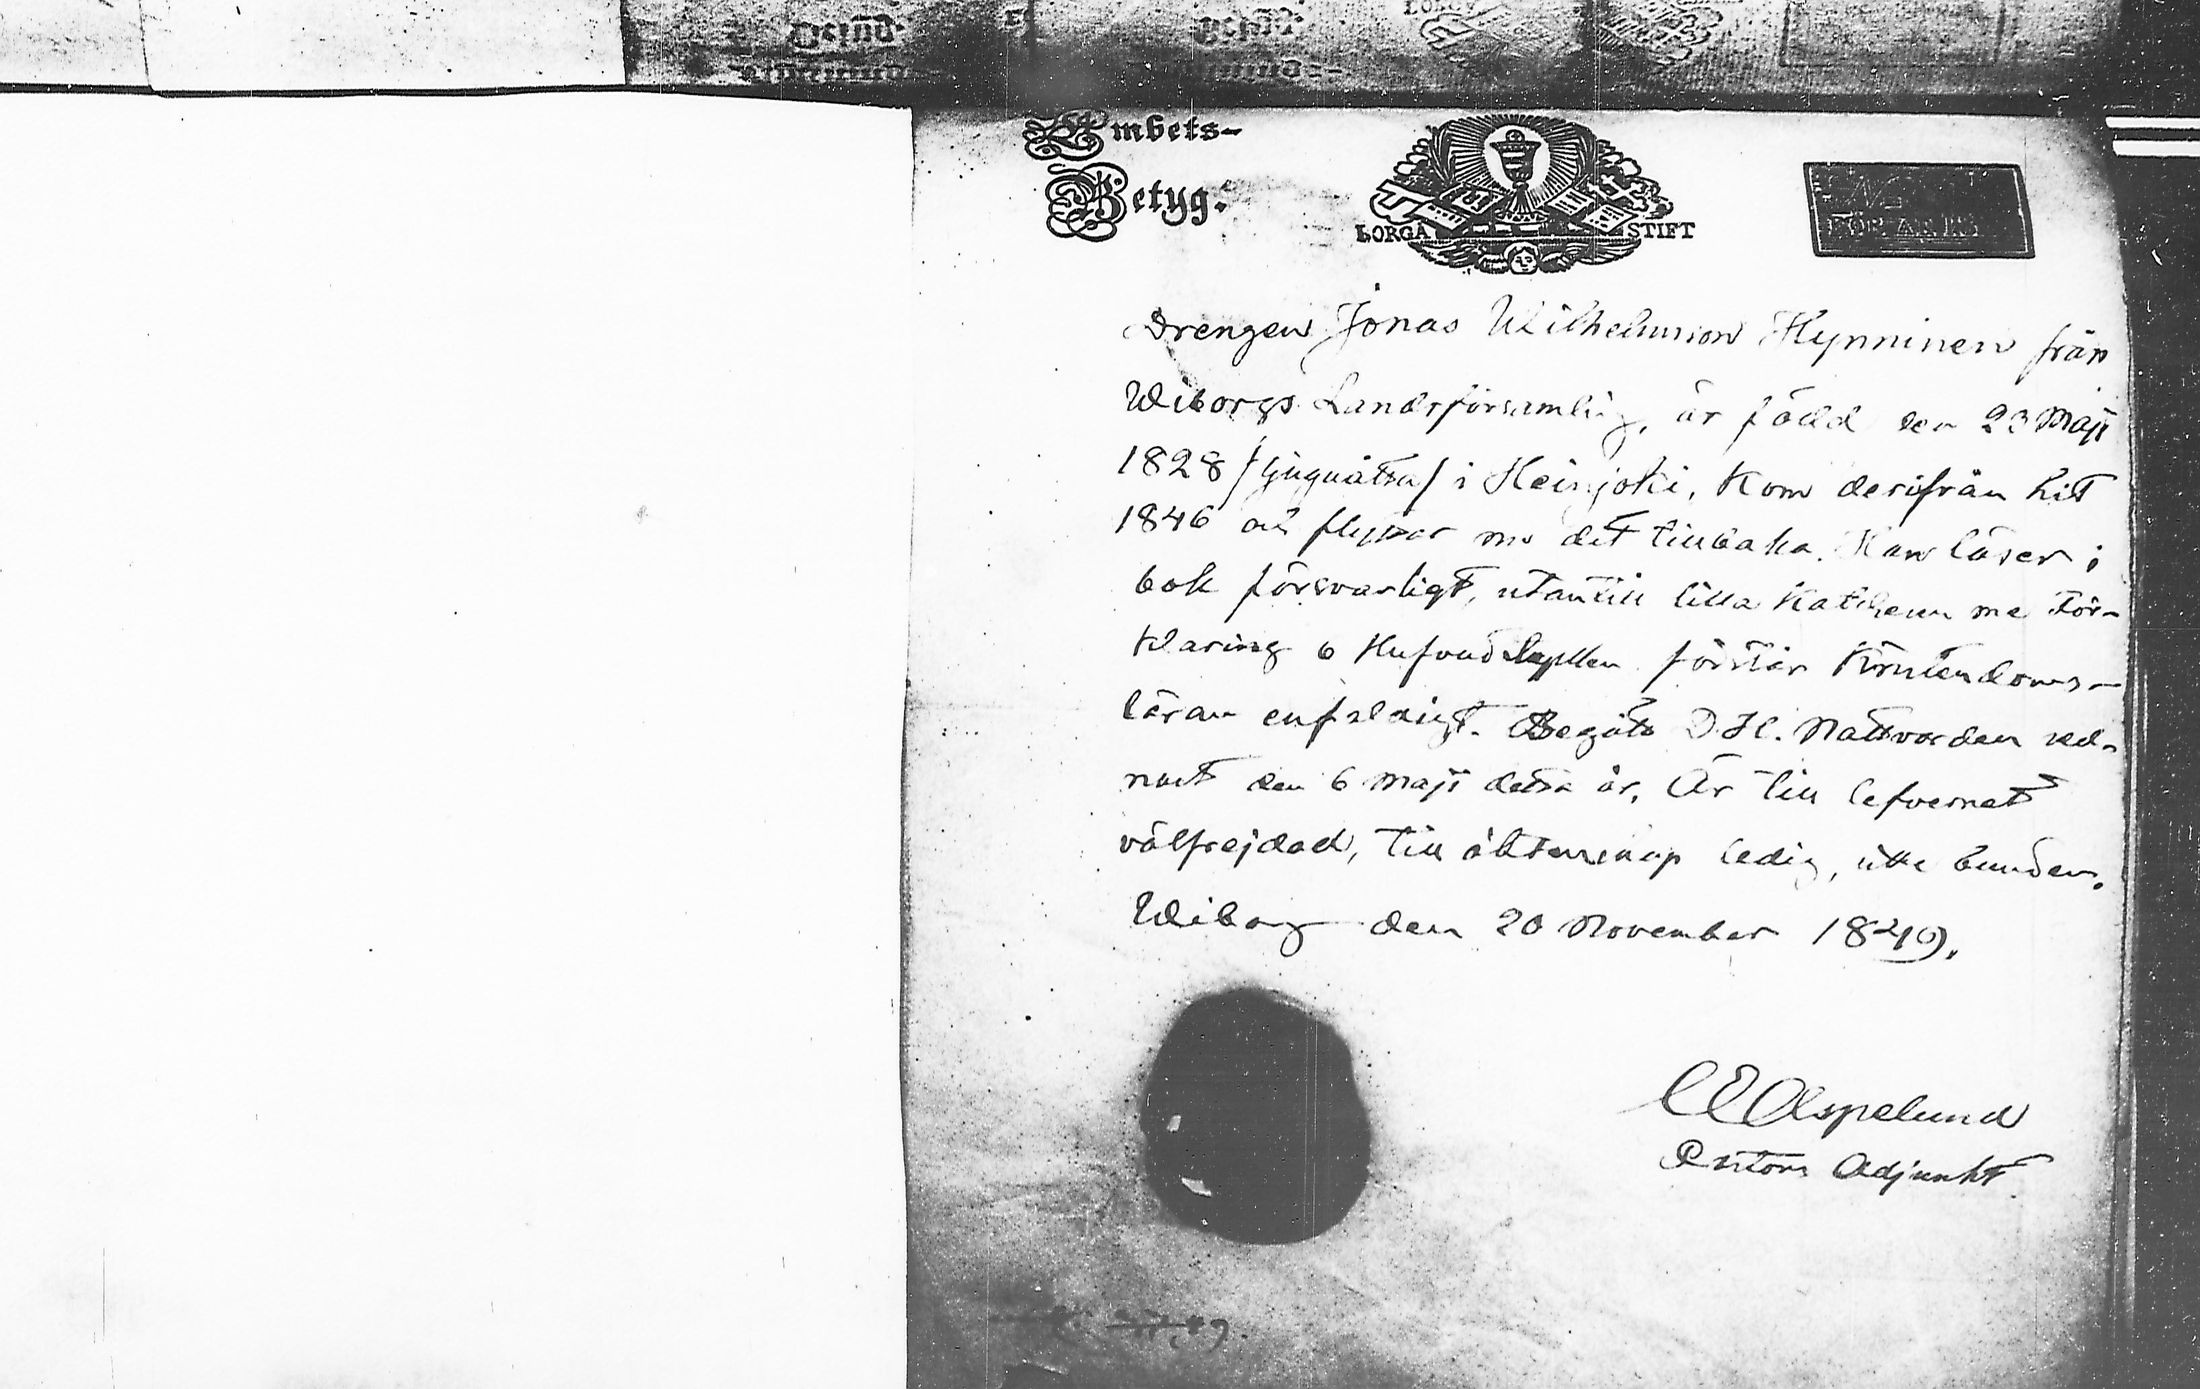 Embets-
Betyg.
BORGÅ STIFT
FÖR
Drengen Jonas Wilhelmsson Hynninen från
Wiborgs Landsförsamling, är född den 23 Maji
1828 /tjuguåtta/ i Heinjoki, Kom derifrån hit
1846 och flyttar nu dit tillbaka. Han läser i
bok försvarligt, utantill lilla Katchesen me För-
klaring o Hufvudstycken förstår Kristendoms-
läran enfaldigt. Begått D.H. Nattvarden sed-
nast den 6 Maji detta år, Är till lefvernet
välfrejdad, till äktenskap ledig, icke bunden.
Wiborg den 20 November 1849.
C E Aspelund
Pastors Adjunkt.